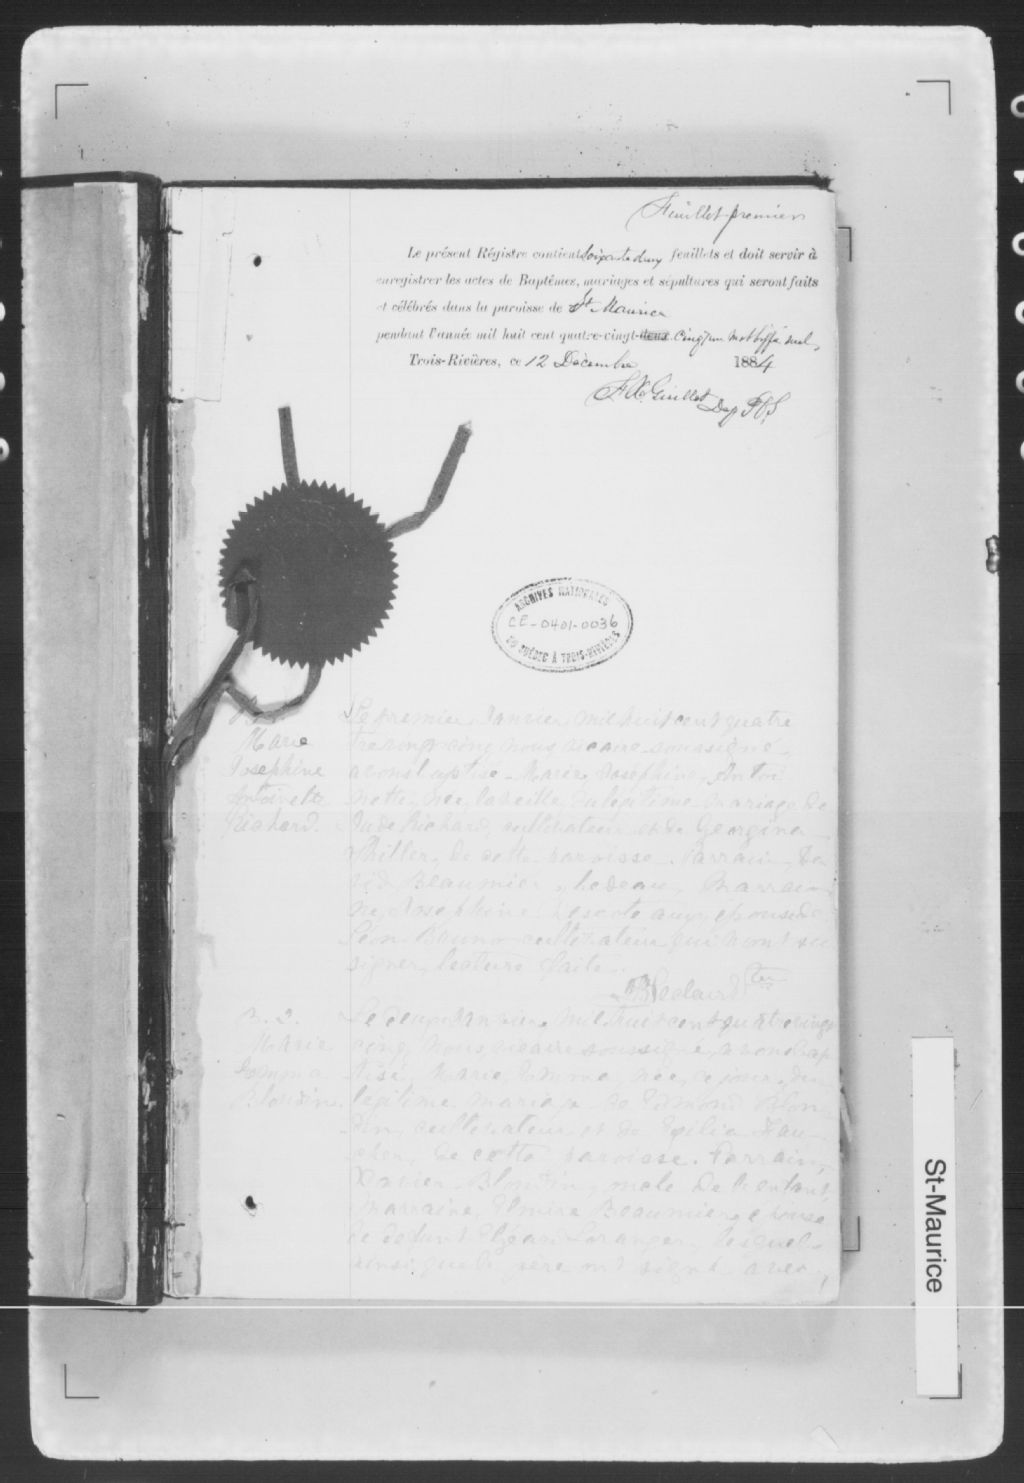 Feuillet premier
Le présent Régistre contient Soixante deux feuillets et doit servir à
enregistrer les actes de Baptêmes, mariages et sépultures qui seront faits
et célébrés dans la paroisse de St Maurice
pendant l'année mil huit cent quatre-vingt-deux cinq, un mot biffé nul,
Trois-Rivières, ce 12 Décembre 1884
F X Guillet Dep P C S
ARCHIVES NATIONALES
CE-0401-0036
DU QUÉBEC À TROIS-RIVIÈRES
Marie
Josephine
Antoinette
Richard.
Le premier Janvier mil huit cent quatre
vingt cinq nous vicaire soussigné
avons baptisé Marie Joséphine Antoi
nette, née la veille du légitime mariage de
Jude Richard, cultivateur et de Georgina
de cette paroisse. Parrain, Da
vid Beaumier, bedeau, Marrai
ne, Josephine épouse de
Léon Bruno cultivateur qui n'ont su
signer, lecture faite.
B. 2.
Marie
Emma
Blondin
Le deux Janvier mil huit cent quatre vingt
cinq, nous, vicaire soussigné, avons bap
tisé, Marie, Emma, née, ce jour, du
légitime mariage de Edmond Blon
din, cultivateur et de
de cette paroisse. Parrain,
Xavier Blondin, oncle de l'enfant,
Marraine, Elmire Beaumier, épouse
de défunt Elzéar Loranger, lesquels
ainsi que le père ont signé avec
St-Maurice